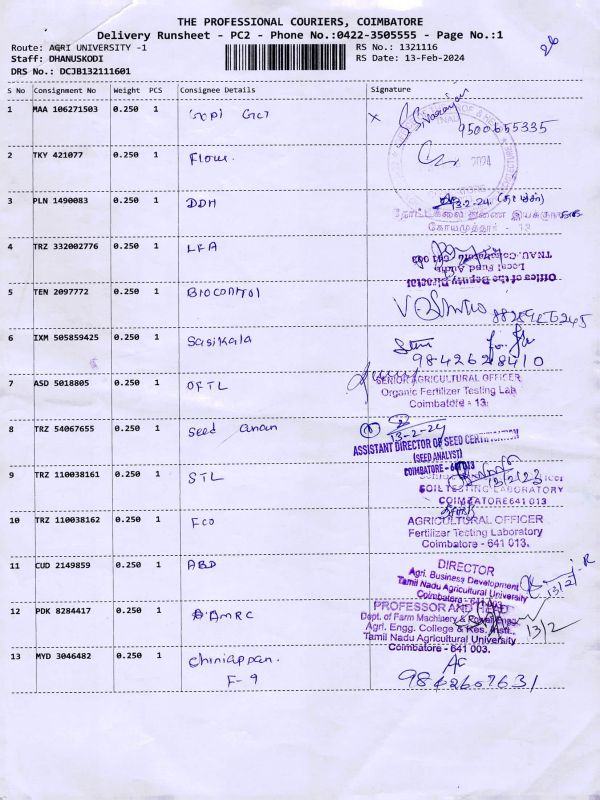 THE PROFESSIONAL COURIERS, COIMBATORE
Delivery Runsheet - PC2 - Phone No.:0422-3505555 - Page No.:1
Route: AGRI UNIVERSITY -1 RS No.: 1321116
Staff: DHANUSKODI RS Date: 13-Feb-2024
DRS No.: DCJB132111601
S No Consignment No Weight PCS Consignee Details Signature
1 MAA 106271503 0.250 1
9500655335
2 TKY 421077 0.250 1 Flow.
2024
3 PLN 1490083 0.250 1 DDH
13-2-24
கோயமுத்தூர் - 13
4 TRZ 332002776 0.250 1 LFA
Office of the Deputy Director
Local Fund Audit
5 TEN 2097772 0.250 1 Biocontrol
6 IXM 505859425 0.250 1 Sasikala
9842628410
7 ASD 5018805 0.250 1 OFTL
SENIOR AGRICULTURAL OFFICER
Organic Fertilizer Testing Lab
Coimbatore - 13.
8 TRZ 54067655 0.250 1 Seed
13-2-24
ASSISTANT DIRECTOR OF SEED CERTIFICATION
(SEED ANALYST)
COIMBATORE - 641 013
9 TRZ 110038161 0.250 1 STL
13/2/23
SOIL TESTING LABORATORY
COIMBATORE 641 013
10 TRZ 110038162 0.250 1 FCO
AGRICULTURAL OFFICER
Fertilizer Testing Laboratory
Coimbatore - 641 013.
11 CUD 2149859 0.250 1 ABD
DIRECTOR
Agri. Business Development
Tamil Nadu Agricultural University
Coimbatore - 641 003.
13/2/
12 PDK 8284417 0.250 1 AMRC
PROFESSOR AND HEAD
Dept. of Farm Machinery & Power Engg.
Agri. Engg. College & Res. Insti.,
Tamil Nadu Agricultural University
Coimbatore - 641 003.
13/2
13 MYD 3046482 0.250 1 Chiniappan.
F-9
9842607631